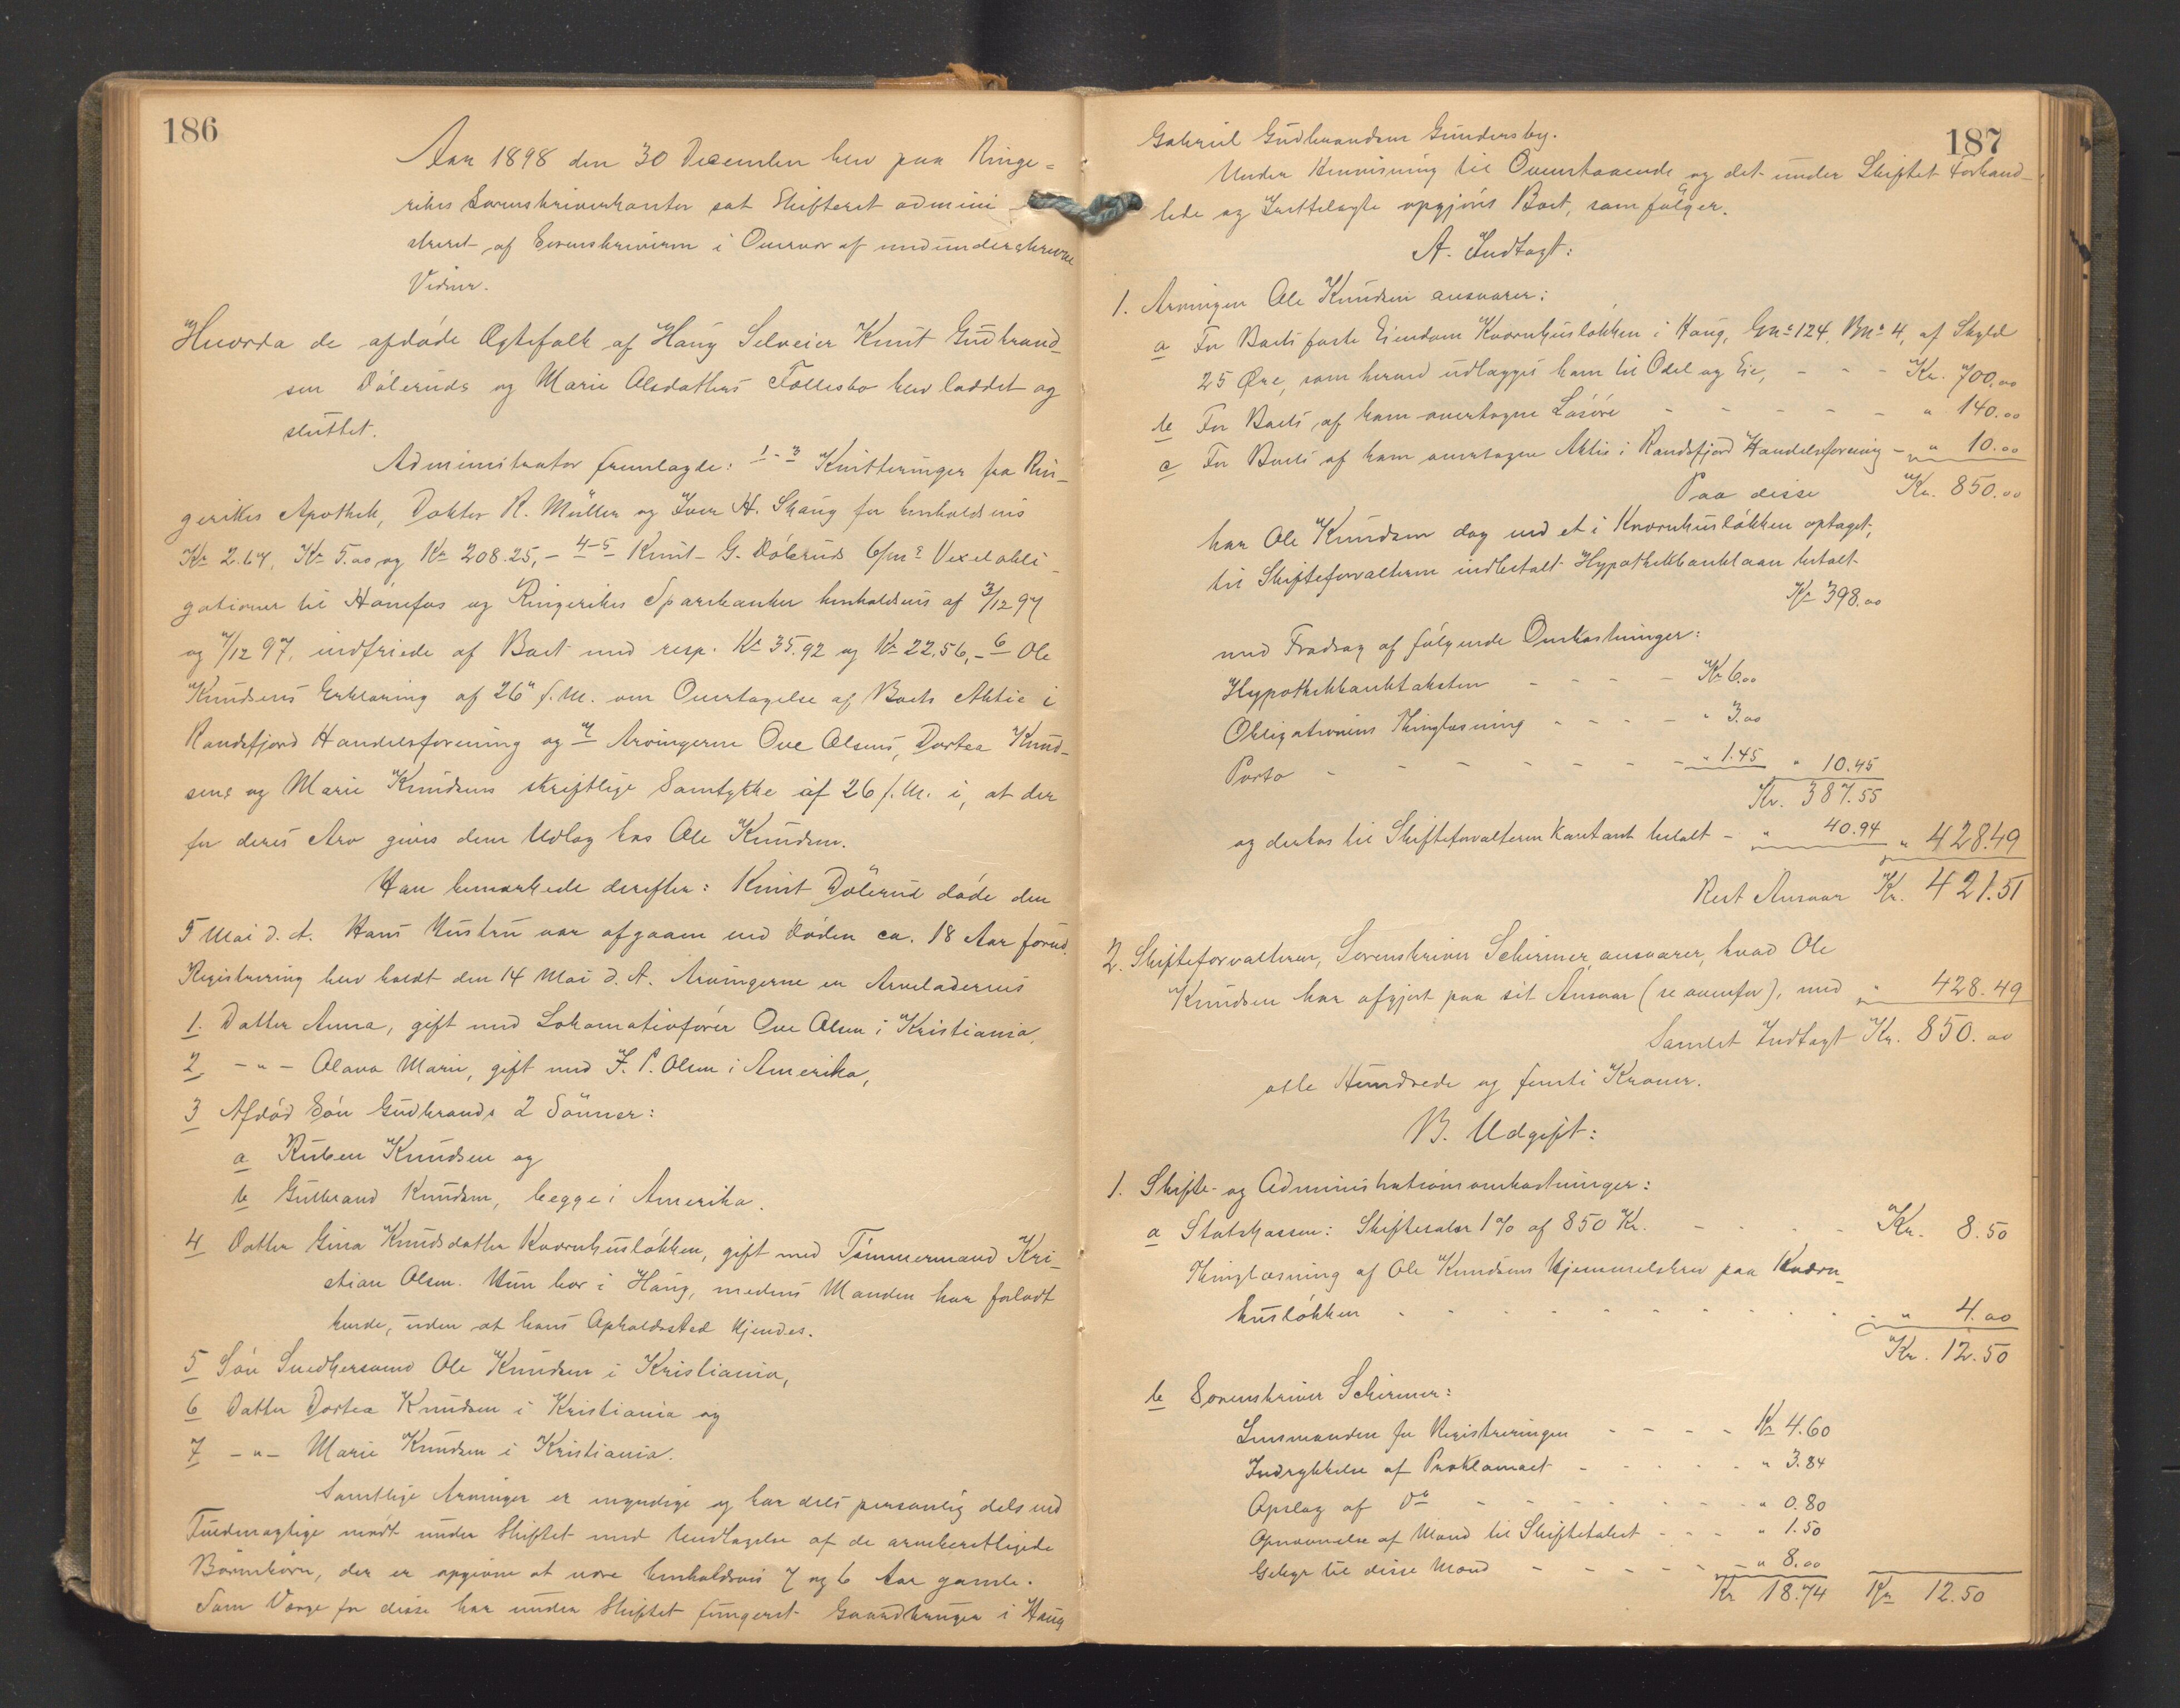 186
Aar 1898 den 30 December blev paa Ringe=
rikes Sorenskriverkontor sat Skifteret admini
streret af Sorenskriveren i Overvær af medunderskrevne
Vidner.
Hvorda de afdøde Ægtefolk af Haug Selveier Knut Gudbrand-
sen Døleruds og Marie Olsdatters Fællesbo blev loddet og
sluttet.
Administrator fremlagde: 1-3 Kvitteringer fra Rin-
gerikes Apothek, Doktor R. Müller og Iver H. Skaug for henholdsvis
Kr 2.67, Kr 5.00 og Kr 208.25, - 4-5 Knut G. Døleruds 6/md Vexelobli-
gationer til Hønefos og Ringerikes Sparebanker henholdsvis af 3/12 97
og 7/12 97, indfriede af Boet med resp. Kr 35.92 og Kr 22.56, - 6 Ole
Knudsens Erklæring af 26 f.M. om Overtagelse af Boets Aktie i
Randsfjord Handelsforening og 7 Arvingerne Ove Olsens, Dortea Knud-
sens og Marie Knudsens skriftlige Samtykke af 26 f.M. i, at der
for deres Arv gives dem Udlæg hos Ole Knudsen.
Han bemærkede derefter: Knut Dølerud døde den
5 Mai d. A. Hans Hustru var afgaaen ved Døden ca. 18 Aar forud.
Registrering blev holdt den 14 Mai d. A. Arvingerne er Arveladernes
1. Datter Anna, gift med Lokomotivfører Ove Olsen i Kristiania,
2. - " - Olava Marie, gift med F. P. Olsen i Amerika,
3 Afdød Søn Gudbrands 2 Sønner:
a Ruben Knudsen og
b Gulbrand Knudsen, begge i Amerika.
4 Datter Gina Knudsdatter Kværnhusløkken, gift med Tømmermand Kri-
stian Olsen. Hun bor i Haug, medens Manden har forladt
hende, uden at hans Opholdssted kjendes.
5 Søn Snedkersvend Ole Knudsen i Kristiania,
6 Datter Dortea Knudsen i Kristiania og
7 - " - Marie Knudsen i Kristiania.
Samtlige Arvinger er myndige og har dels personlig dels ved
Fuldmægtige mødt under Skiftet med Undtagelse af de arveberettigede
Børnebørn, der er opgivne at være henholdsvis 7 og 6 Aar gamle.
Som Værge for disse har under Skiftet fungeret Gaardbruger i Haug
187
Gabriel Gudbrandsen Gundersby.
Under Henvisning til Ovenstaaende og det under Skiftet Forhand-
lede og Fremlagte opgjøres Boet, som følger.
A. Indtægt:
1. Arvingen Ole Knudsen ansvarer:
a For Boets faste Eiendom Kværnhusløkken i Haug, Gno 124, Bno 4, af Skyld
25 Øre, som herved udlægges ham til Odel og Eie, - - - Kr. 700.00
b For Boets af ham overtagne Løsøre - - - - - - " 140.00
c For Boets af ham overtagne Aktie i Randsfjord Handelsforening - " 10.00
Paa disse Kr. 850.00
har Ole Knudsen dog ved et i Kværnhusløkken optaget,
til Skifteforvalteren indbetalt Hypothekbanklaan betalt
Kr 398.00
med Fradrag af følgende Omkostninger:
Hypothekbanktaksten - - - - Kr 6.00
Obligationens Thinglæsning - - - - " 3.00
Porto - - - - - - - - " 1.45 " 10.45
Kr. 387.55
og derhos til Skifteforvalteren kontant betalt - " 40.94 " 428.49
Rest Ansvar Kr. 421.51
2. Skifteforvalteren, Sorenskriver Schirmer ansvarer, hvad Ole
Knudsen har afgjort paa sit Ansvar (se ovenfor), med " 428.49
Samlet Indtægt Kr. 850.00
otte Hundrede og femti Kroner.
B. Udgift:
1. Skifte- og Administrationsomkostninger:
a Statskassen: Skiftesalær 1% af 850 Kr. - - - - Kr. 8.50
Thinglæsning af Ole Knudsens Hjemmelsbrev paa Kværn-
husløkken - - - - - - - - - - " 4.00
Kr. 12.50
b Sorenskriver Schirmer:
Lensmanden for Registreringen - - - - Kr 4.60
Indrykkelse af Proklamaet - - - - - " 3.84
Opslag af Do - - - - - - - - " 0.80
Opnævnelse af Mænd til Skiftetakst - - - " 1.50
Gebyr til disse Mænd - - - - - - " 8.00
Kr 18.74 Kr 12.50